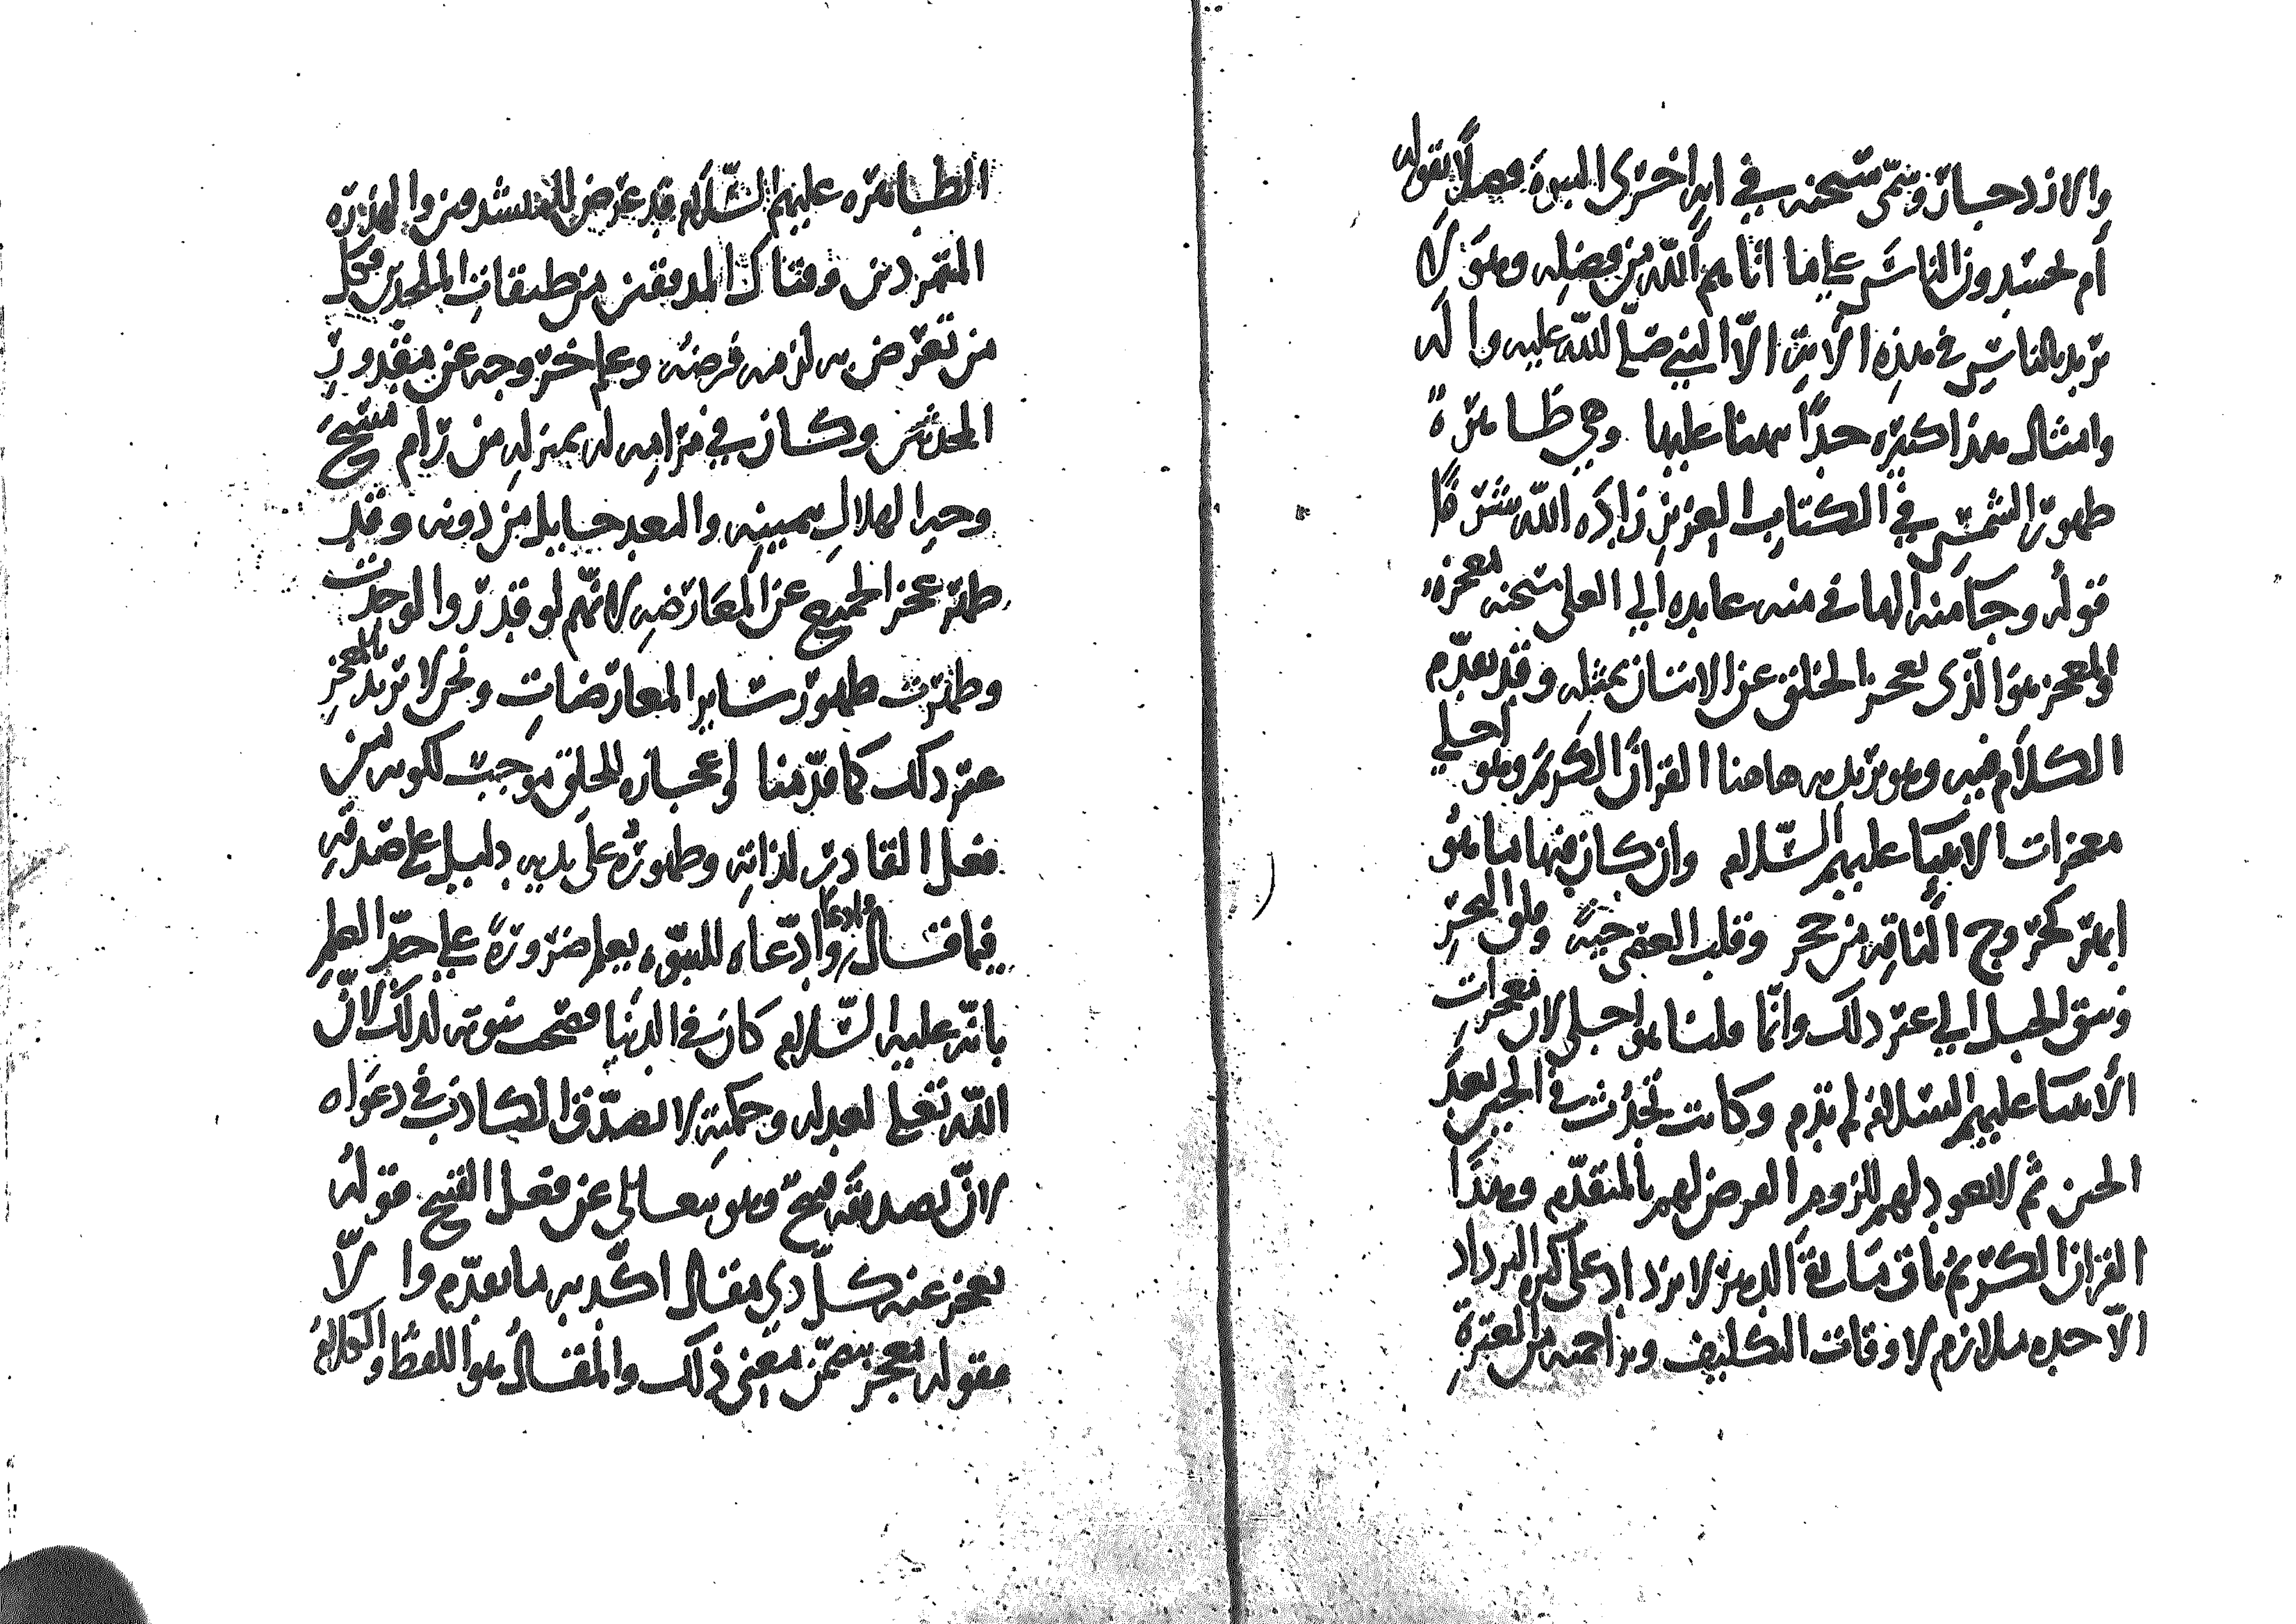 والازدجار وسمى سبحنه في اية اخرى النبوة فضلًا بقوله
أم يحسدون الناسَ على ما اتاهم الله من فضله وهو لا
يريد بالناسِ في هذه الأية الّا النبي صلى الله عليه واله
وامثال هذا كثيره جدًا نبهنا عليها وهي ظاهرةً
ظهور الشمسِ في الكتاب العزيز زاده الله شرفًا
قوله وجا منه الهافى منه عايده الى العلى سبحنه بمعجزةٍ
والمعجز هو الّذى يعجز الخلق عن الاتيان بمثله وقد تقدّم
الكلام فيه وهو يريد به هاهنا القرانَ الكريم وهو اجلى
معجزات الانبيا عليهم السّلام وان كان فيها ما هو
ابهر كخروج الناقه من حجر وقلب العصى حيةً وفلق البحرِ
ونتق الجبل الى غير ذلك وانّما قلنا هو اجلى لان معجزات
الأنبيا عليهم السلام لم تدم وكانت تحدُث في الحين بعدَ
الحين ثم لا تعود لهم للزومِ الفرض لهم بالمتقدّم وهذا
القران الكريم باق متا لقةً الدهر لا يزداد على كثرة الترداد
الّا جده ملازم لاوقات التكليف ومزاحمته من العترةِ
الطاهره عليهم السّلام قد عرض للمفسدين والهذره
المتمردين وفتاك المدققين من طبقات الملحدين فكل
من تعرض به لزمه فرضه وعلم خروجه عن مقدور
المحدثين وكان في مرامِه له بمنزله من رام مسحَ
وجه الهلالِ بيمينِه والبعد حايل من دونه وقد
ظهر عجز الجميع عن المعارضه لانّهم لو قدروا لوجدت
وظهرت ظهور ساير المعارضاتِ ونحن لا نريد بالمعجز
غير ذلك كما قدّمنا واعجازه للخلق موجب لكونه من
فعل القادرِ لذاته وظهورُه على يديه دليل على صدقهِ
فيما قال وادّعاه للنبوّه يعلم ضرورةً على حدّ العلم
بانّه عليه السّلام كان في الدنيا فصحت نبوته لذلك لانّ
الله تعالى لعدله وحكمته لا يصدّق الكاذب في دعواه
لانّ تصديقَه قبيح وهو يتعالى عن فعل القبيح قوله
يعجز عنه كلّ ذي مقال اكّد به ما تقدّم والّا
فقوله معجز يتضمّن معنى ذلك والمقالُ هو اللفظُ والكلامُ